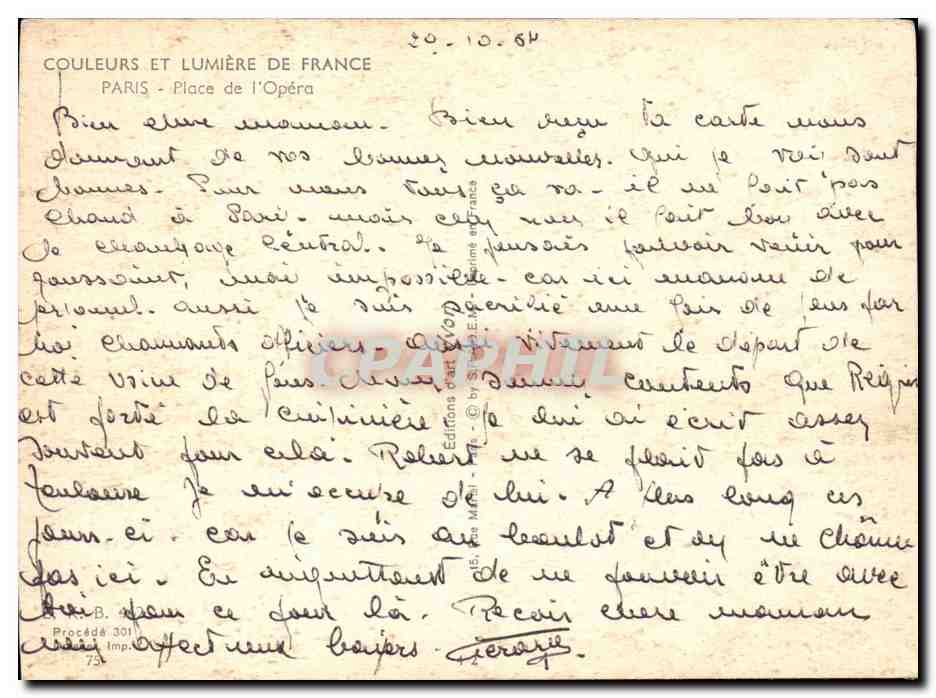 20-10-64
COULEURS ET LUMIÈRE DE FRANCE
PARIS - Place de l'Opéra
Bien chère maman. Bien reçu ta carte nous
donnant de vos bonnes nouvelles. qui je vois sont
bonnes. Pour nous tous ça va - il ne fait pas
chaud à Paris. mais chez nous il fait bon avec
le chauffage Central. Je pensais pouvoir venir pour
toussaint, mais impossible - car ici manque de
personnel. aussi je suis sacrifié une fois de plus par
officiers. aussi vivement le départ de
cette usine de contents que Régis
est porté la je lui ai écrit assez
souvent pour cela. Robert ne se plait pas à
Toulouse je m'occupe de lui. A plus long ces
jours-ci. car je suis au boulot et on ne chôme
pas ici. En de ne pouvoir être avec
toi pour ce jour là. Reçois chère maman
mes affectueux baisers
Editions d'art Yvon
15, Rue Martel - Paris - © by S.P.A.D.E.M. - Imprimé en France
Procédé 301
Imp.
75
CPAPHIL